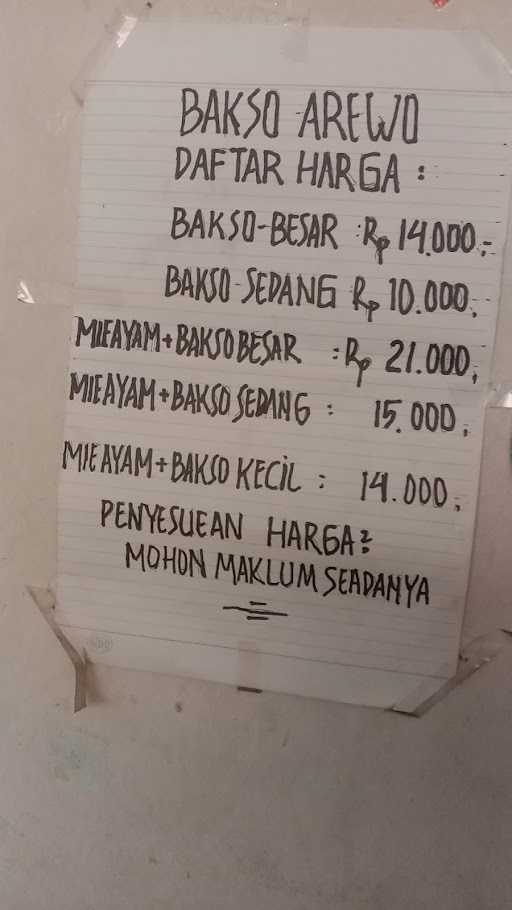 BAKSO AREWO
DAFTAR HARGA :
BAKSO-BESAR : Rp 14.000,-
BAKSO-SEDANG Rp 10.000,-
MIEAYAM+BAKSO BESAR : Rp 21.000,-
MIEAYAM+BAKSO SEDANG : 15.000,-
MIE AYAM+BAKSO KECIL : 14.000,-
PENYESUEAN HARGA2
MOHON MAKLUM SEADANYA